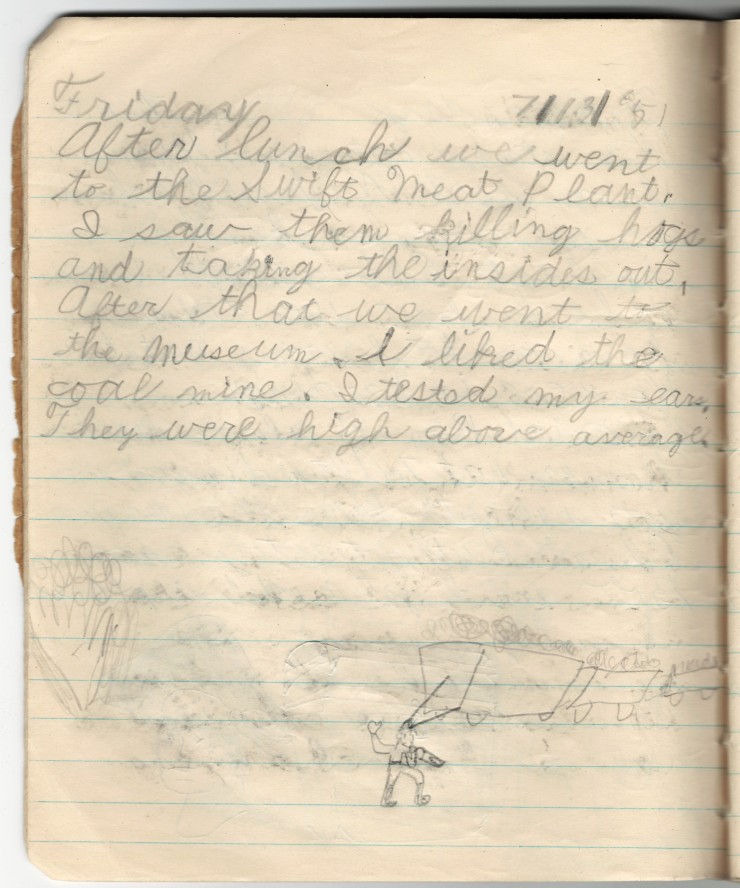 Friday 7/13/51
After lunch we went
to the Swift Meat Plant.
I saw them killing hogs
and taking the insides out.
After that we went to
the museum. I liked the
coal mine. I tested my ears.
They were high above average.